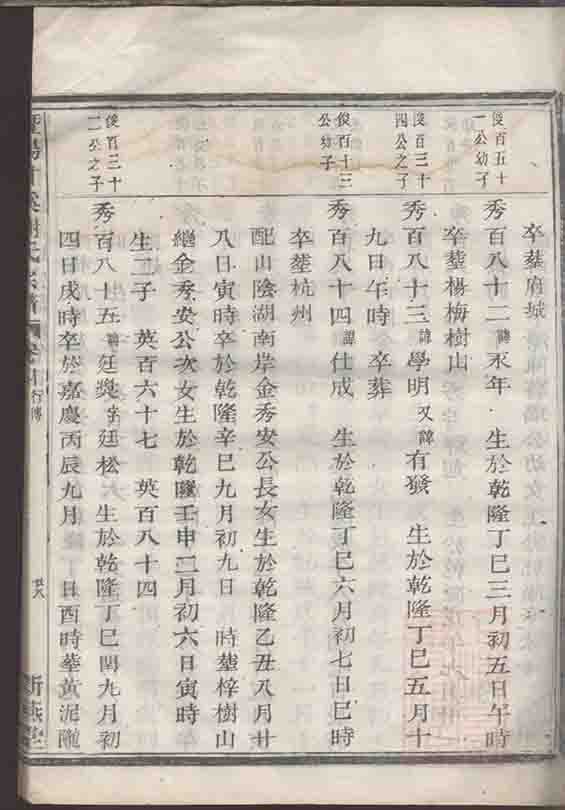 卒塟府城
俊百五十
一公幼子
秀百八十二諱永年 生於乾隆丁巳三月初五日午時
卒塟楊梅樹山
俊百三十
四公之子
秀百八十三諱學明又諱有發 生於乾隆丁巳五月十
九日午時 卒葬
俊百十三
公幼子
秀百八十四諱仕成 生於乾隆丁巳六月初七日巳時
卒塟杭州
配山陰湖南岸金秀安公長女生於乾隆乙丑八月廿
八日寅時卒於乾隆辛巳九月初九日 時塟梓樹山
繼金秀安公次女生於乾隆壬申二月初六日寅時
生二子 英百六十七 英百八十四
俊百三十
二公之子
秀百八十五諱廷奬字廷松 生於乾隆丁巳閏九月初
四日戌時卒於嘉慶丙辰九月 日酉時塟黃泥隴
氏宗譜 行傳